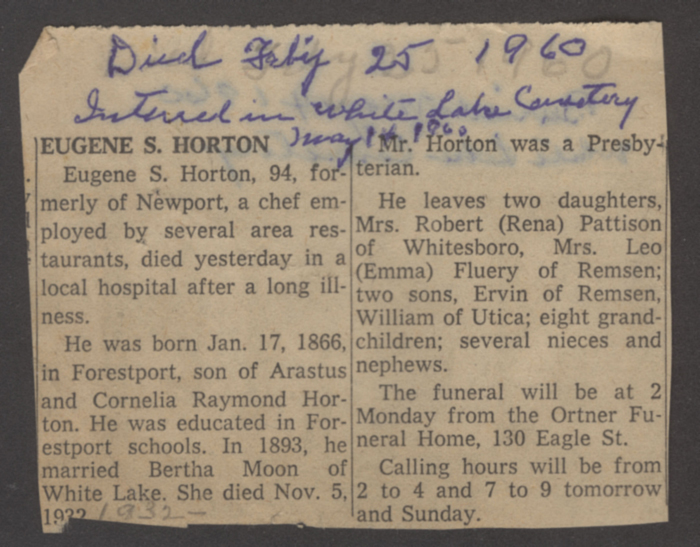 Died Feb'y 25 1960
Interred in White Lake Cemetery
May 14 1960
EUGENE S. HORTON
Eugene S. Horton, 94, for-
merly of Newport, a chef em-
ployed by several area res-
taurants, died yesterday in a
local hospital after a long ill-
ness.
He was born Jan. 17, 1866,
in Forestport, son of Arastus
and Cornelia Raymond Hor-
ton. He was educated in For-
estport schools. In 1893, he
married Bertha Moon of
White Lake. She died Nov. 5,
1932 1932-
Mr. Horton was a Presby-
terian.
He leaves two daughters,
Mrs. Robert (Rena) Pattison
of Whitesboro, Mrs. Leo
(Emma) Fluery of Remsen;
two sons, Ervin of Remsen,
William of Utica; eight grand-
children; several nieces and
nephews.
The funeral will be at 2
Monday from the Ortner Fu-
neral Home, 130 Eagle St.
Calling hours will be from
2 to 4 and 7 to 9 tomorrow
and Sunday.